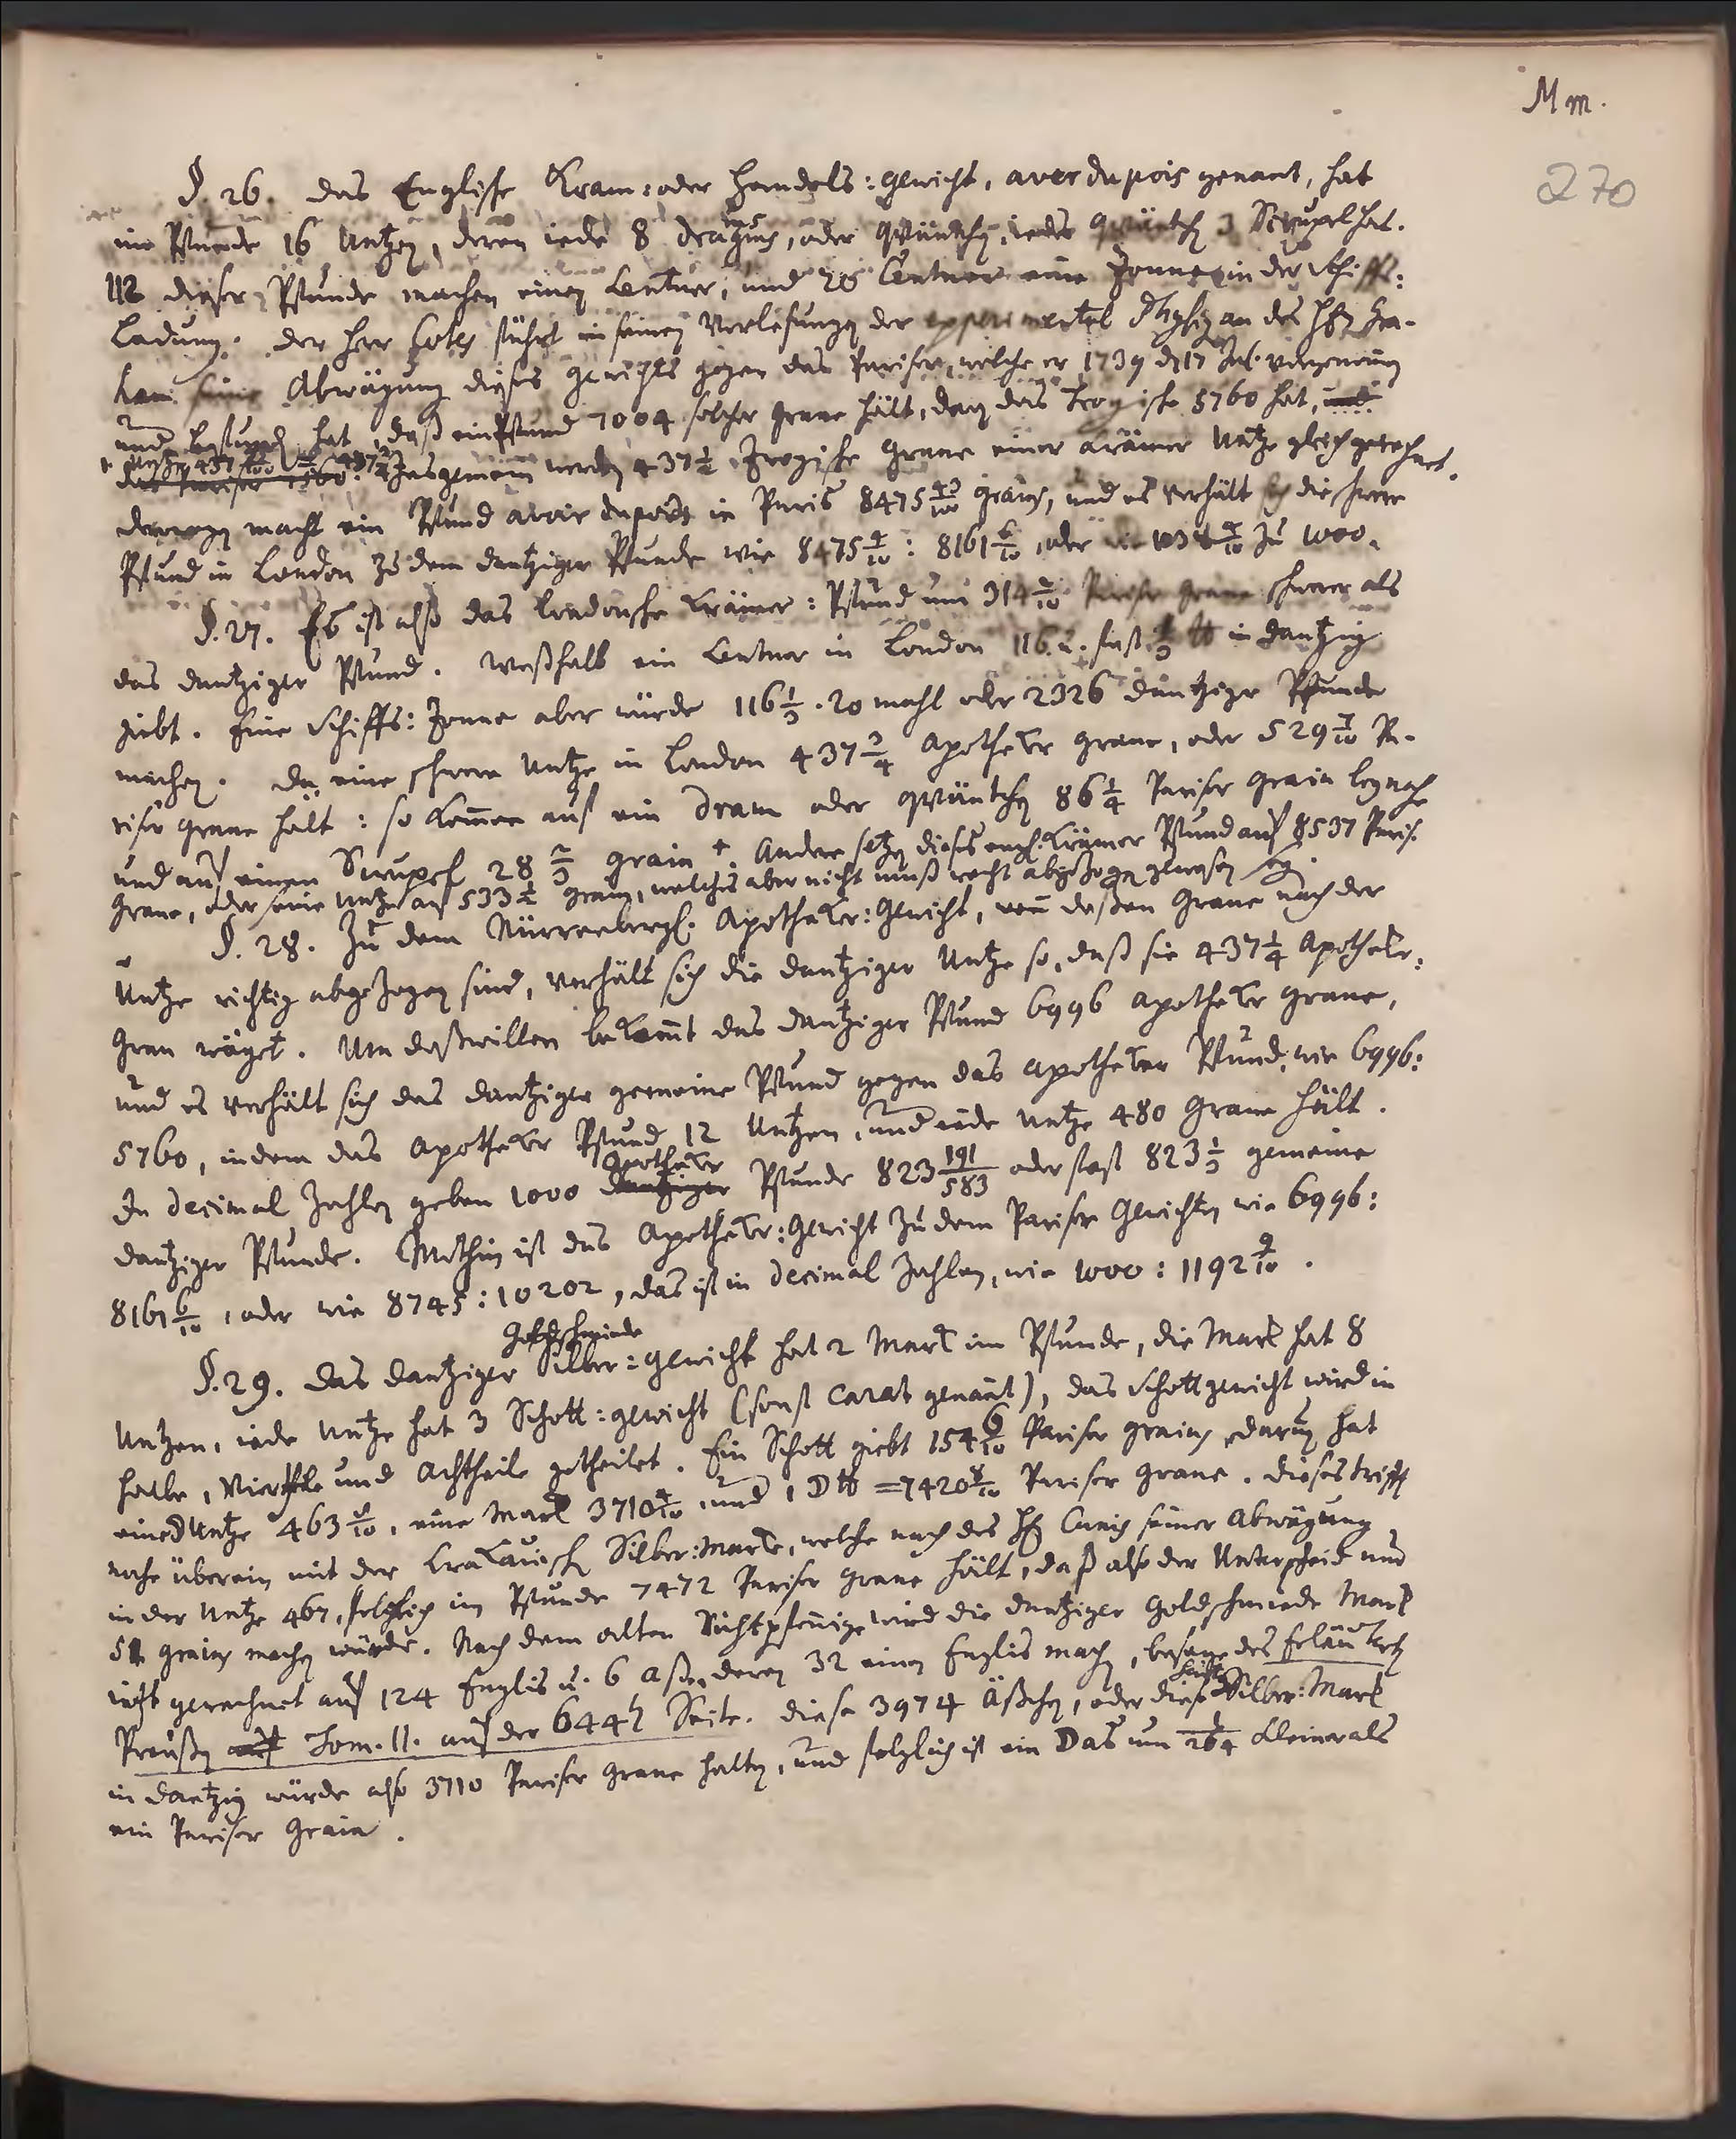 Mm.
270
§. 26. Das Englische Kram: oder Handels: gewicht, averdupois genant, hat
im Pfunde 16 Untzen, deren iede 8 dragms, oder Qväntchen, iedes Qväntch 3 Scrupel hat.
112 dieser Pfunde machen einen Centner, und 20 Centner eine Tonne in der Schiffs:
Ladung. Der Herr Cotes führt in seinen Vorlesungen der experimental Physic an des Hn Gra-
ham seine Abwägung dieses Gewichts gegen das Pariser, welche er 1739 d 17 Jul. vorgenommen
und befunden hat, daß ein Pfund 7004 solcher Grane hält, deren das Troyische 5760 hat, und
das Pariser 7560. Insgemein werden 437 1/2 Troyische Grane einer Krämer Untze gleich gerechnet.
derwegen macht ein Pfund avoir dupois in Paris 8475 43/100 grains, und es verhält sich die schwere
Pfund in London zu dem dantziger Pfunde wie 8475 4/10 : 8161 6/10, oder wie 1038 4/10 zu 1000.
§. 27. Es ist also das Londonsche Krämer: Pfund um 314 Pariser Grane schwerer als
das dantziger Pfund. Weßhalb ein Centner in London 116 u. fast 1/3 ℔ in Dantzig
giebt. Eine Schiffs: Tonne aber würde 116 1/3 . 20 mahl oder 2326 dantziger Pfunde
machen. Da eine schwere Untze in London 437 3/4 Apotheker Grane, oder 529 7/10 Pa-
riser Grane hält: so kommen auf ein Dram oder Qväntchen 86 1/4 Pariser Grain beynahe
und auf einen Scrupel 28 2/3 grain +. Andere setzen dieses engl. Krämer Pfund auf 8537 Paris.
Grane, oder seine Untze auf 533 1/2 Grains, welches aber nicht muß recht abgezogen gewesen sey.
§. 28. Zu dem Nürrenbergl. Apotheker: Gewicht, von deßen Grane nach der
Untze richtig abgezogen sind, verhält sich die dantziger Untze so, daß sie 437 1/4 Apotheker:
Gran wäget. Um deßwillen bekommt das dantziger Pfund 6996 Apotheker Grane,
und es verhält sich das dantziger gemeine Pfund gegen das Apotheker Pfund, wie 6996:
5760, indem das Apotheker Pfund 12 Untzen, und iede Untze 480 Grane hält.
In decimal Zahlen geben 1000 dantziger Apotheker Pfunde 823 191/583 oder fast 823 1/3 gemeine
dantziger Pfunde. Mithin ist das Apotheker: Gewicht zu dem Pariser Gewichten wie 6996:
8161 6/10, oder wie 8745 : 10202, das ist in decimal Zahlen, wie 1000 : 1192 9/10.
Goldschmiede
§. 29. Das dantziger Silber: gewicht hat 2 Mark im Pfunde, die Mark hat 8
Untzen, iede Untze hat 3 Schott: gewicht (sonst Carat genant), das Schottgewicht wird in
halbe, Viertheile und Achtheile getheilet. Ein Schott giebt 154 6/10 Pariser grains, darum hat
eine Untze 463 8/10, eine Mark 3710 4/10, und 1 ℔ = 7420 8/10 Pariser Grane. Dieses trifft
nahe überein mit der Krakauisch Silber: Mark, welche nach des Hn Canis seiner Abwägung
in der Untze 467, folglich im Pfunde 7472 Pariser Grane hält, daß also der Unterscheid nur
51 grains machen würde. Nach dem alten Richtpfennige wird die dantziger Goldschmiede Mark
ietzt gerechnet auf 124 Englis u. 6 Aß, deren 32 einen Englis machen, besage des Erläuterten
Preußen Tom. II. auf der 644 Seite. Diese 3974 Äßchen, oder diese Silber: Mark
in Dantzig würde also 3710 Pariser Grane halten, und folglich ist ein Das um 1/264 kleiner als
ein Pariser Grain.